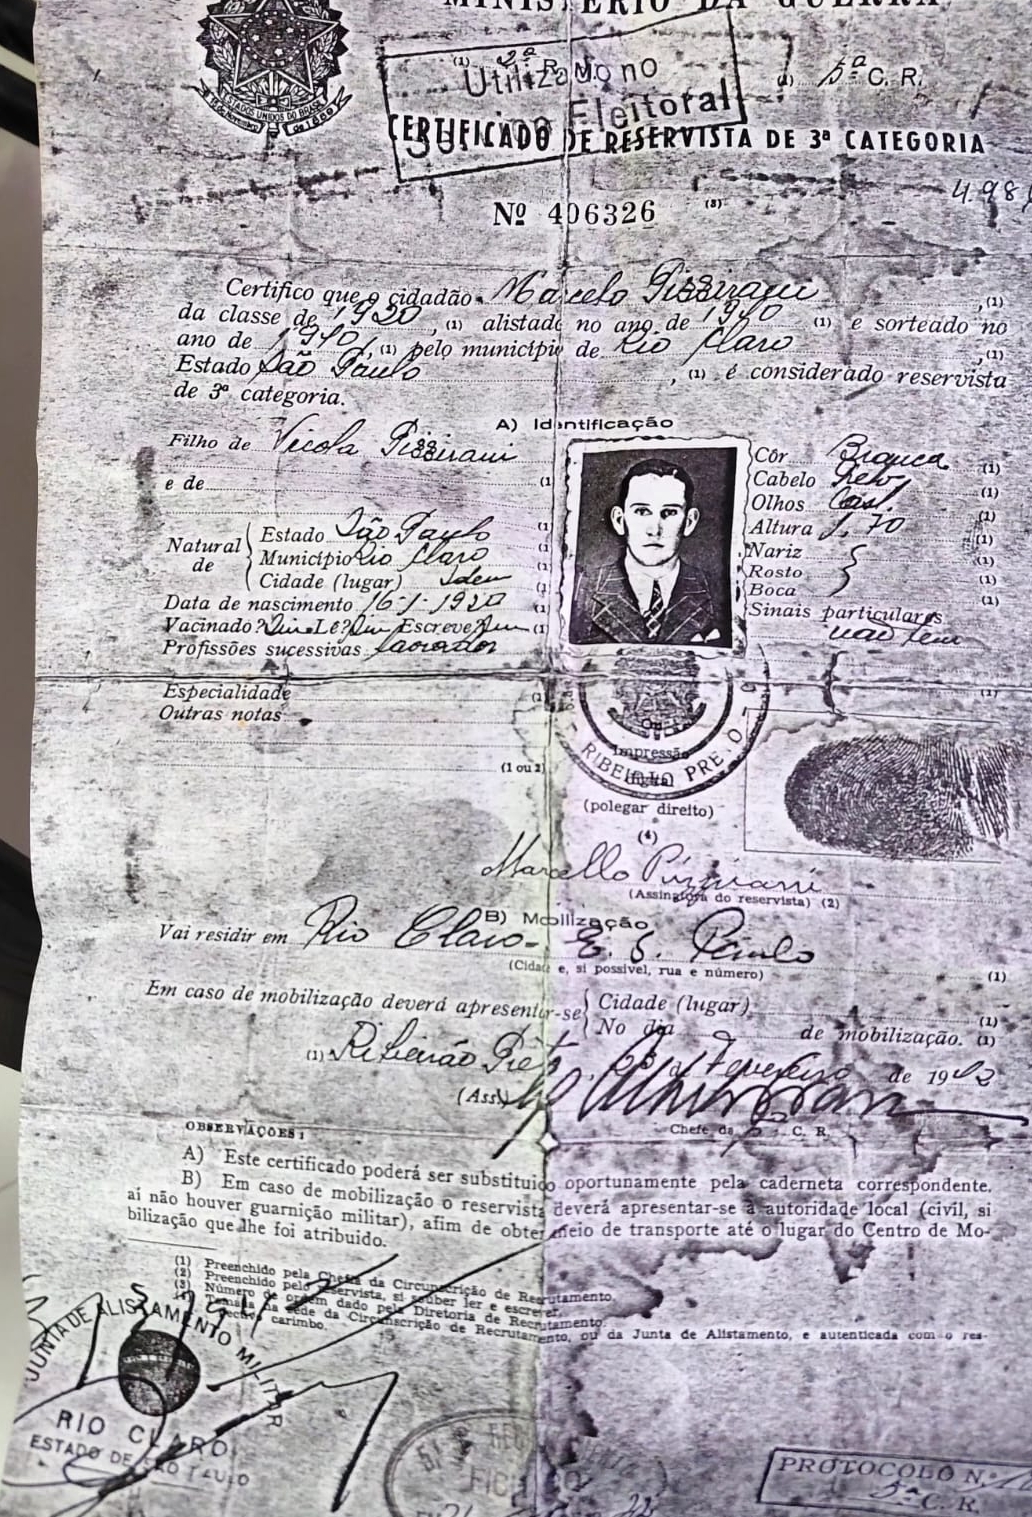 MINISTÉRIO DA GUERRA
ESTADOS UNIDOS DO BRASIL
(1) 2ª R. M. (1) 5ª C. R.
Utilizado no
Eleitoral
CERTIFICADO DE RESERVISTA DE 3ª CATEGORIA
Nº 406326 (3)
Certifico que o cidadão Marcelo Pizzirani ,(1)
da classe de 1920 ,(1) alistado no ano de 1940 (1) e sorteado no
ano de 1940 ,(1) pelo município de Rio Claro ,(1)
Estado São Paulo , (1) é considerado reservista
de 3ª categoria.
A) Identificação
Filho de Nicola Pizzirani (1)
e de (1)
Natural de
Estado São Paulo (1)
Município Rio Claro (1)
Cidade (lugar) Idem (1)
Data de nascimento 16-1-1920 (1)
Vacinado? Sim Lê? Sim Escreve? Sim (1)
Profissões sucessivas Lavrador
Côr Branca (1)
Cabelo Preto (1)
Olhos Cast. (1)
Altura 1,70 (1)
Nariz (1)
Rosto (1)
Boca (1)
Sinais particulares
não tem
Especialidade (1)
Outras notas
(1 ou 2)
RIBEIRÃO PRETO
Impressão
digital
(polegar direito)
(4)
Marcello Pizzirani
(Assinatura do reservista) (2)
B) Mobilização
Vai residir em Rio Claro - E. S. Paulo
(Cidade e, si possível, rua e número) (1)
Em caso de mobilização deverá apresentar-se
Cidade (lugar) (1)
No dia de mobilização. (1)
(1) Ribeirão Preto, 23 de Fevereiro de 1942
(Ass)
Chefe da 5ª C. R.
OBSERVAÇÕES:
A) Este certificado poderá ser substituido oportunamente pela caderneta correspondente.
B) Em caso de mobilização o reservista deverá apresentar-se à autoridade local (civil, si
aí não houver guarnição militar), afim de obter meio de transporte até o lugar do Centro de Mo-
bilização que lhe foi atribuido.
(1) Preenchido pela Chefia da Circunscrição de Recrutamento.
(2) Preenchido pelo reservista, si souber ler e escrever.
(3) Número de ordem dado pela Diretoria de Recrutamento.
(4) Tomada na séde da Circunscrição de Recrutamento, ou da Junta de Alistamento, e autenticada com o res-
pectivo carimbo.
JUNTA DE ALISTAMENTO MILITAR
RIO CLARO
ESTADO DE SÃO PAULO
PROTOCOLO N.º
5ª C. R.